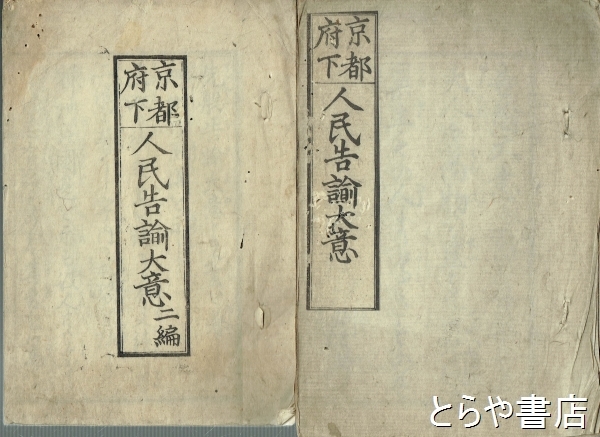 京都府下人民告諭大意
京都府下人民告諭大意二編
とらや書店